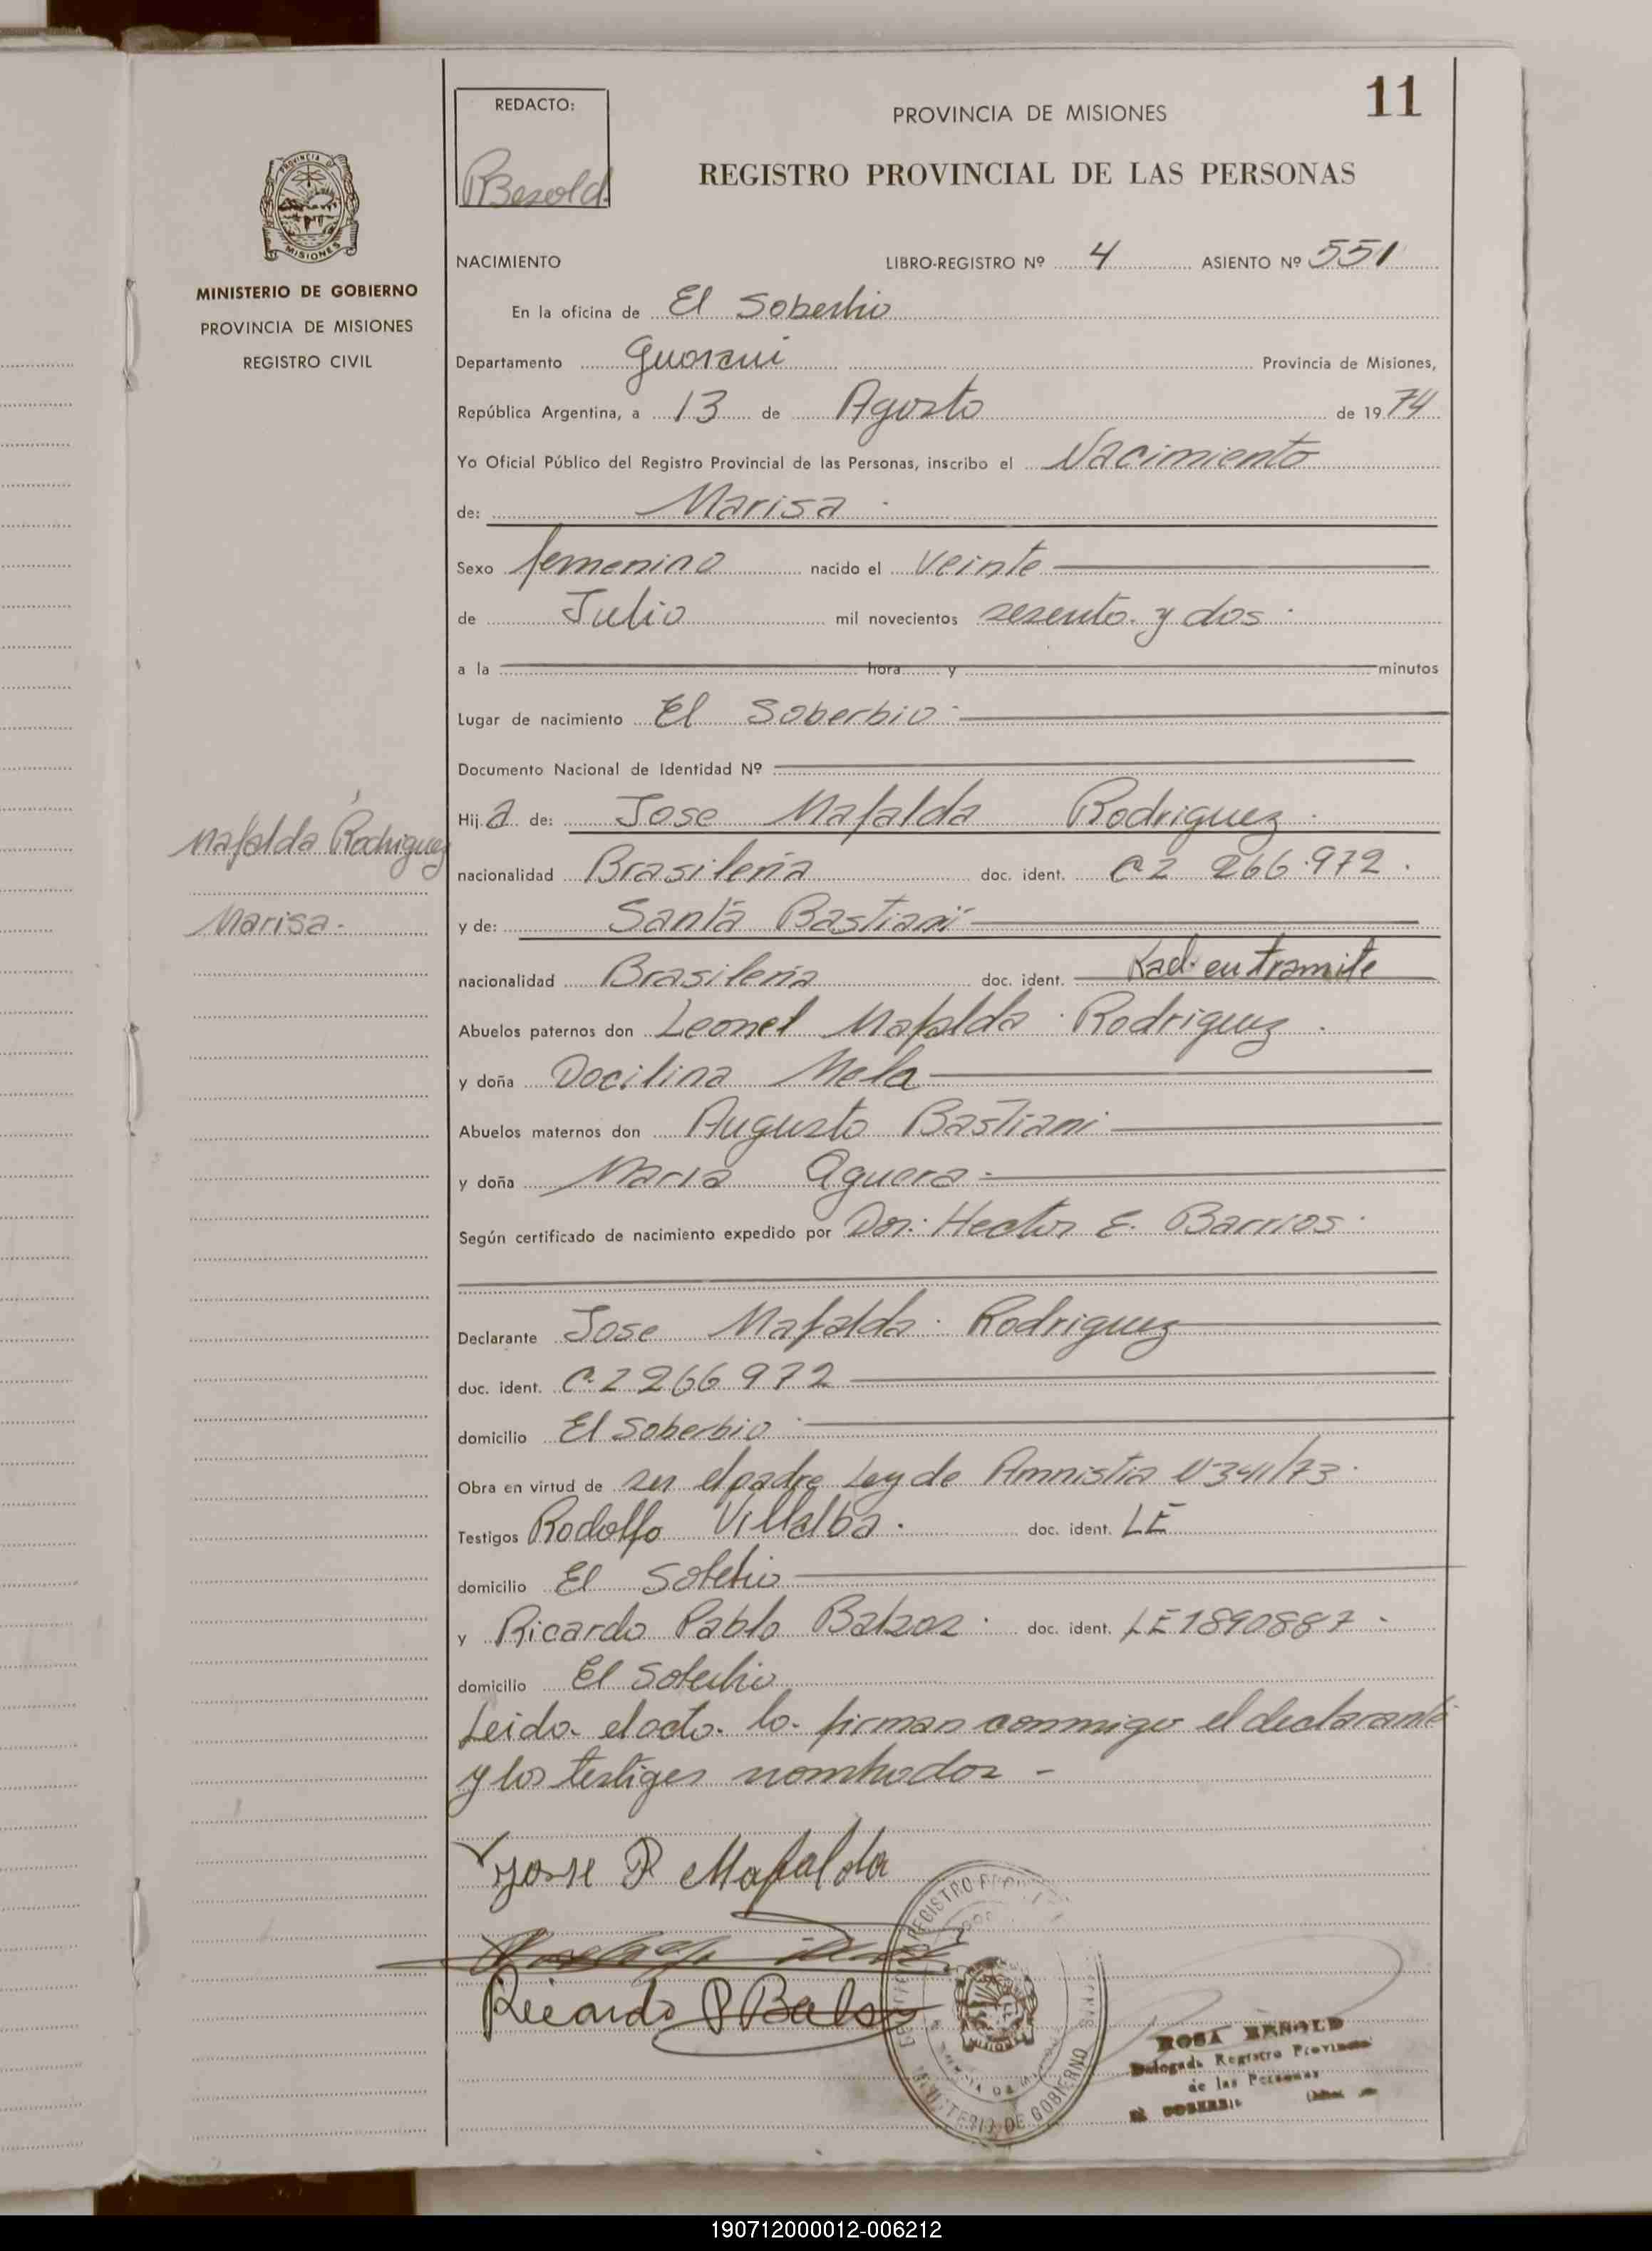 11
REDACTO:
PROVINCIA DE MISIONES
REGISTRO PROVINCIAL DE LAS PERSONAS
MINISTERIO DE GOBIERNO
PROVINCIA DE MISIONES
REGISTRO CIVIL
NACIMIENTO LIBRO-REGISTRO Nº 4 ASIENTO Nº 551
En la oficina de El Soberbio
Departamento Guarani Provincia de Misiones,
República Argentina, a 13 de Agosto de 1974
Yo Oficial Público del Registro Provincial de las Personas, inscribo el Nacimiento
de: Marisa
Sexo femenino nacido el veinte
de Julio mil novecientos sesenta y dos
a la hora y minutos
Lugar de nacimiento El Soberbio
Documento Nacional de Identidad Nº
Hija de: Jose Mafalda Rodriguez
Mafalda Rodriguez
Marisa.
nacionalidad Brasileña doc. ident. C2 266.972.
y de: Santa Bastiani
nacionalidad Brasileña doc. ident. Rad. en tramite
Abuelos paternos don Leonel Mafalda Rodriguez
y doña Docilina Mela
Abuelos maternos don Augusto Bastiani
y doña Maria Aguera
Según certificado de nacimiento expedido por Don: Hector E. Barrios
Declarante Jose Mafalda Rodriguez
doc. ident. C.2 266 972
domicilio El Soberbio
Obra en virtud de ser el padre Ley de Amnistia
Testigos Rodolfo Villalba. doc. ident. LE
domicilio El Soberbio
y Ricardo Pablo doc. ident. LE 1890887
domicilio El Soberbio
Leido el acto lo firman conmigo el declarante
y los testigos nombrados -
Jose R Mafalda
Ricardo P
REGISTRO
MINISTERIO DE GOBIERNO
MISIONES
ROSA BENOLD
Delegada Registro Provincial
de las Personas
EL SOBERBIO
190712000012-006212